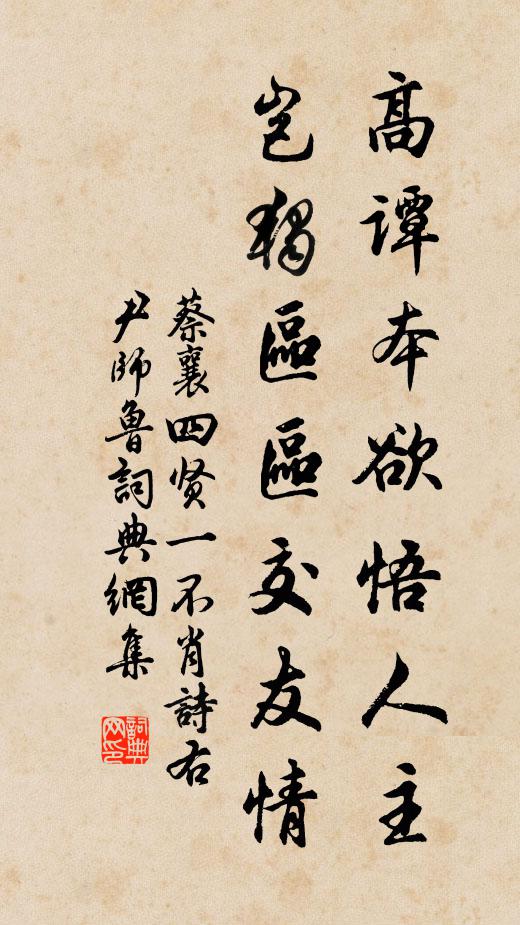 高譚本欲悟人主
豈獨區區交友情
蔡襄四贤一不肖詩右
尹師魯詞典網集
詞典網印